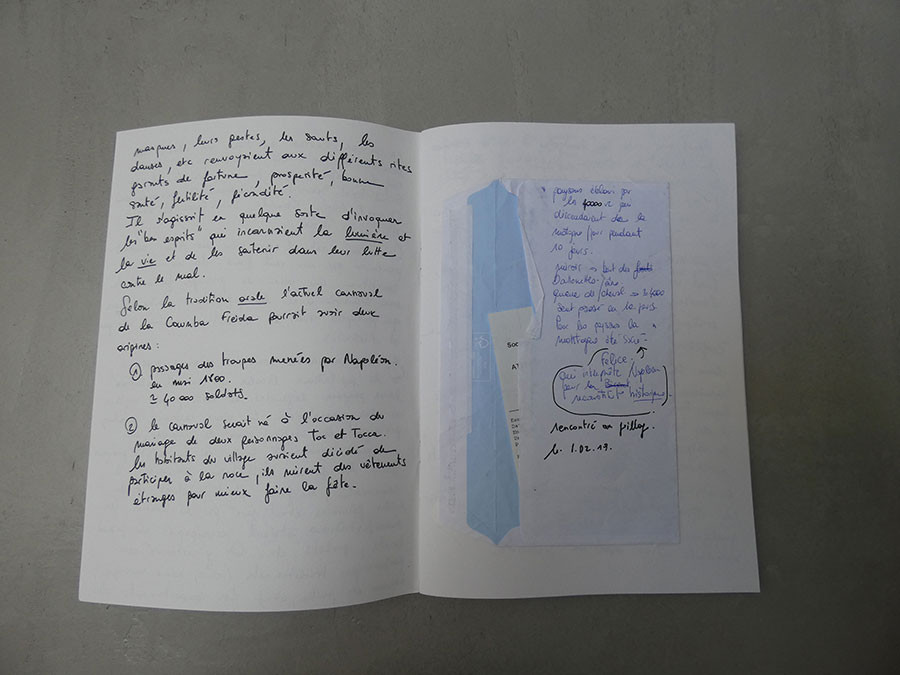 masques, leurs gestes, les sauts, les
danses, etc renvoyaient aux différents rites
garants de fortune, prosperité, bonne
santé, fertilité, fécondité.
Il s'agissait en quelque sorte d'invoquer
les "bon esprits" qui incarnaient la lumière et
la vie et de les soutenir dans leur lutte
contre le mal.
Selon la tradition orale l'actuel carnaval
de la Coumba Freida pourrait avoir deux
origines :
① passages des troupes menées par Napoléon.
en mai 1800.
≃ 40 000 soldats.
② le carnaval serait né à l'occasion du
mariage de deux personnages Toc et Tocca.
les habitants du village avaient décidé de
participer à la noce, ils mirent des vêtements
étranges pour mieux faire la fête.
paysans
les 40000
descendaient de la
pendant
10 jours.
miroir
queue de cheval
Pour les paysans la
Félice.
qui interprète Napoléon
pour la
historique.
rencontré au
1.02.19.